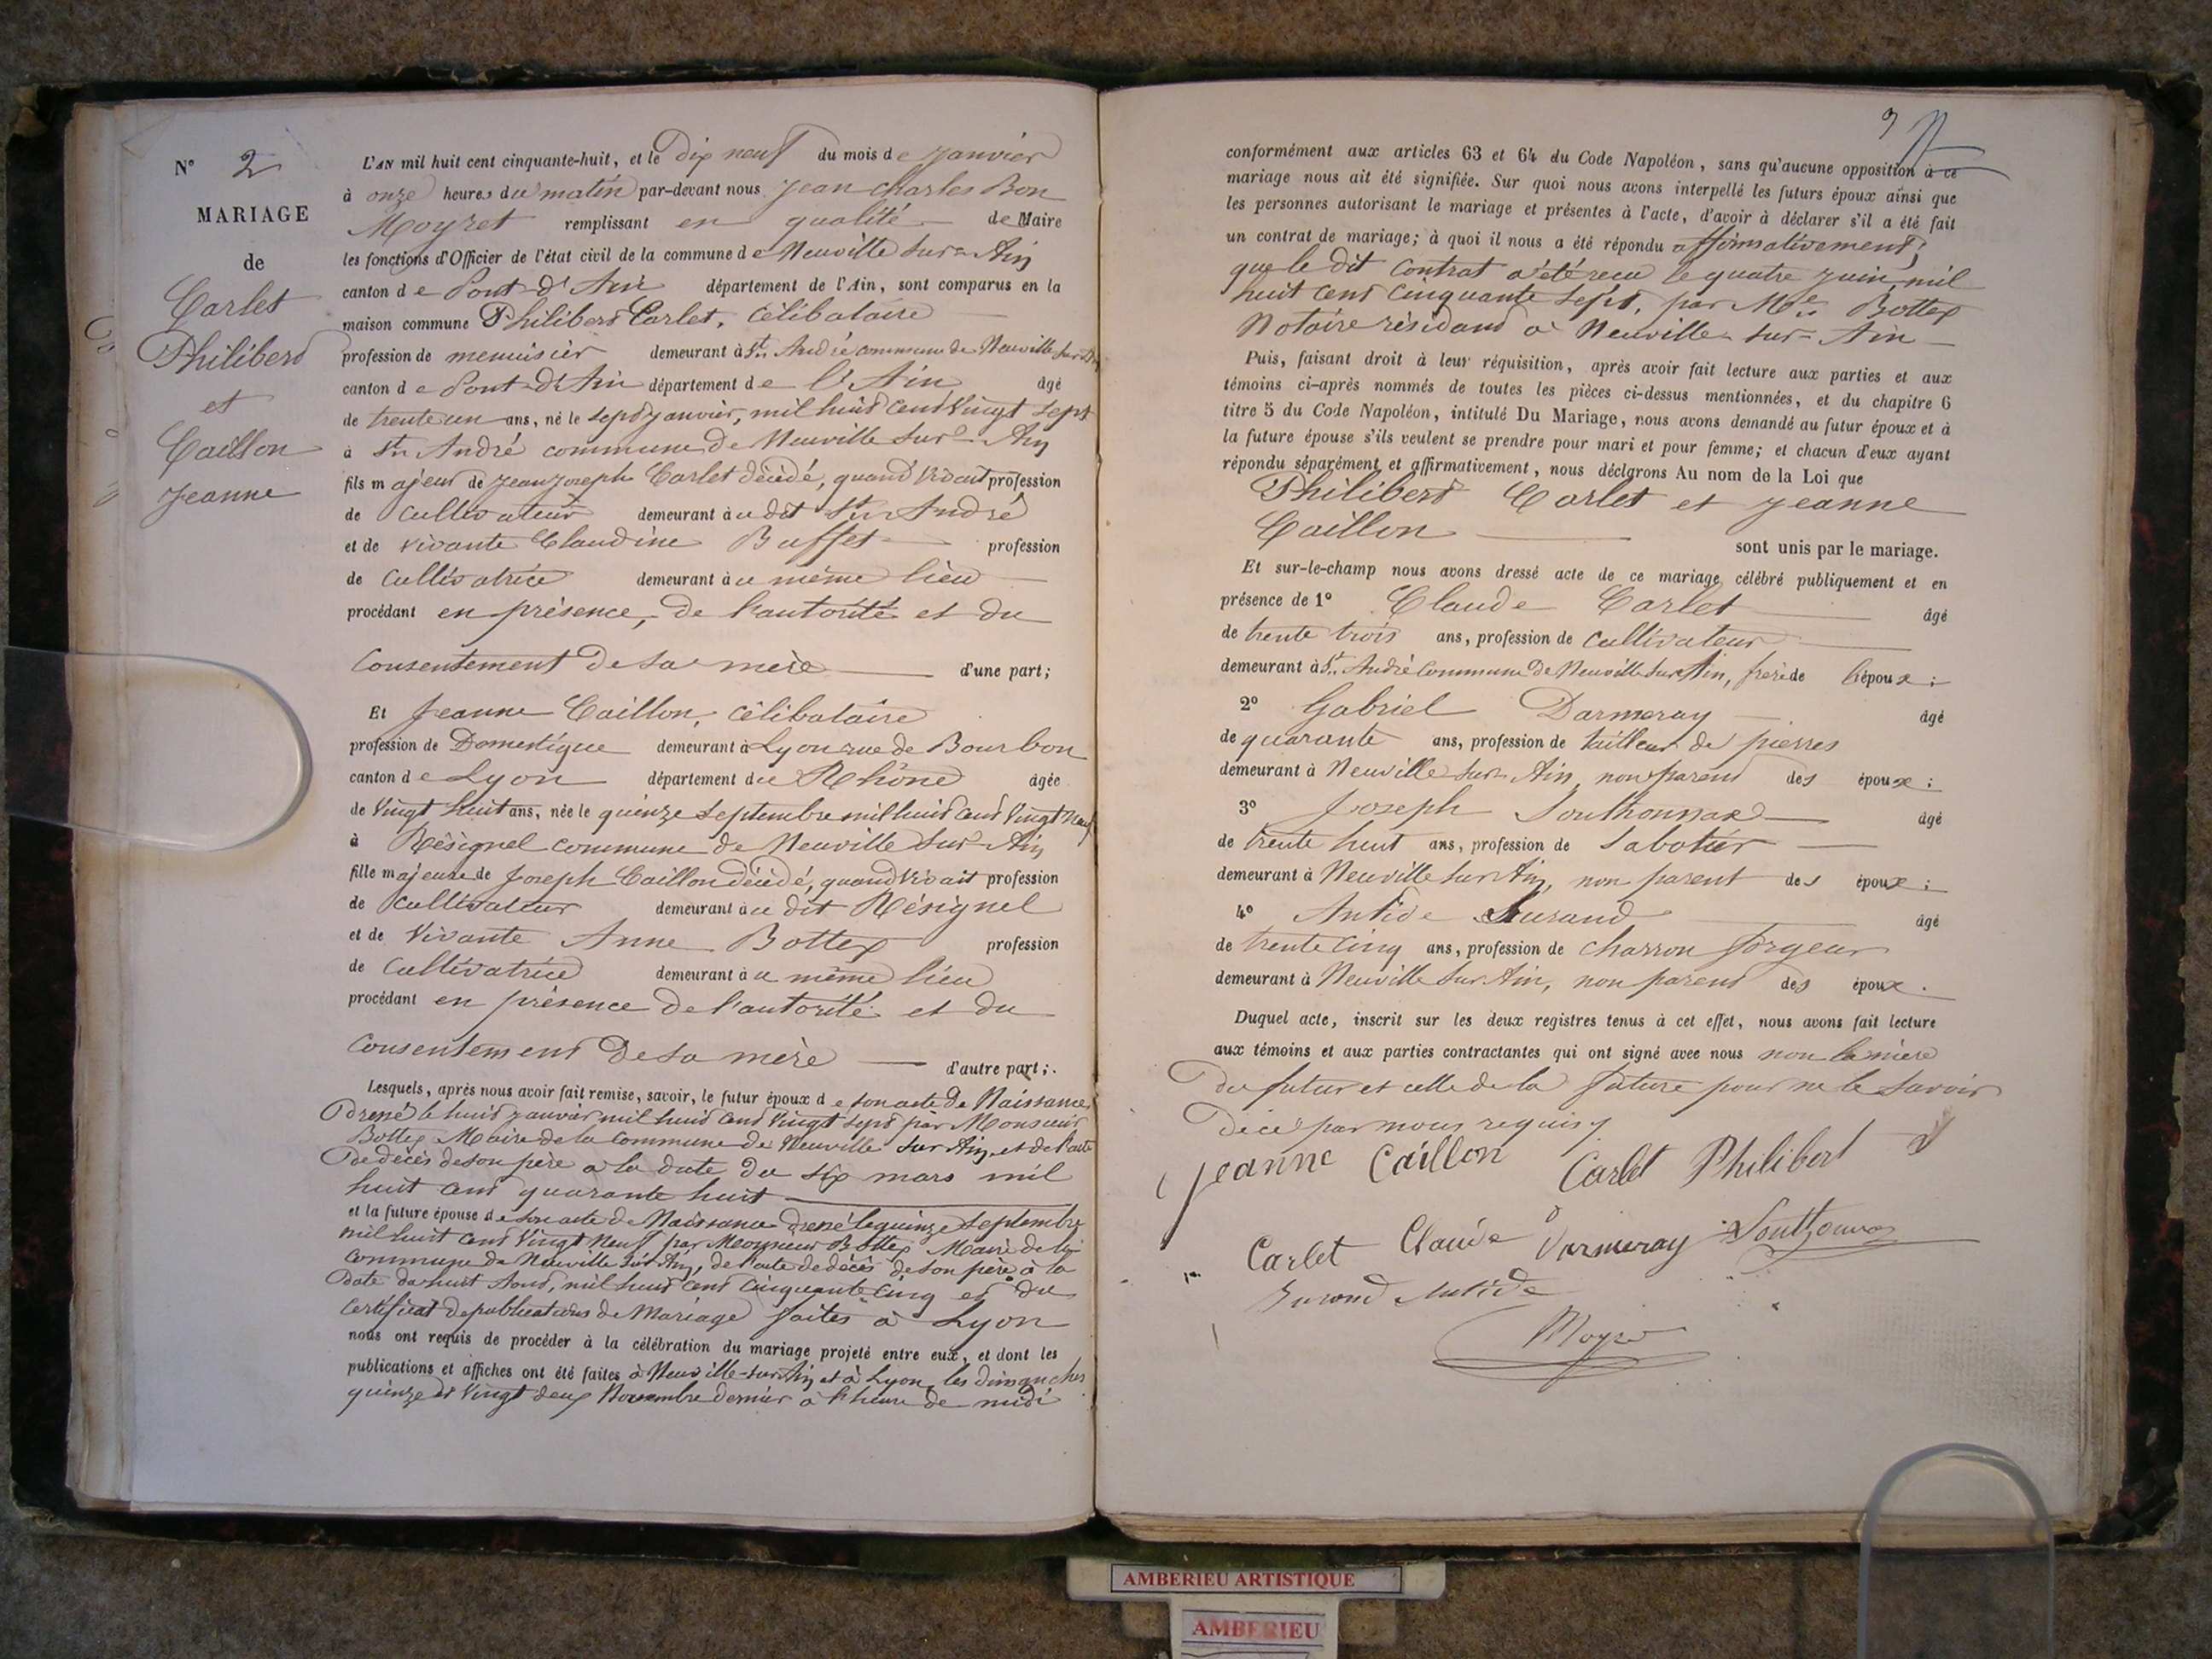 N° 2
MARIAGE
de
Carlet
Philibert
et
Caillon
Jeanne
L'AN mil huit cent cinquante-huit, et le Dix neuf du mois de Janvier
à onze heures du matin par-devant nous Jean Charles Bon
Moyret remplissant en qualité de Maire
les fonctions d'Officier de l'état civil de la commune de Neuville sur-Ain
canton de Pont-d'Ain département de l'Ain, sont comparus en la
maison commune Philibert Carlet, célibataire
profession de menuisier demeurant à St. André commune de Neuville sur-Ain
canton de Pont-d'Ain département de l'Ain âgé
de trente un ans, né le sept Janvier, mil huit cent vingt sept
à St. André commune de Neuville sur-Ain
fils majeur de Jean Joseph Carlet décédé, quand vivait profession
de cultivateur demeurant au dit St. André
et de vivante Claudine Buffet profession
de Cultivatrice demeurant au même lieu
procédant en présence, de l'autorité et du
Consentement de sa mère d'une part;
Et Jeanne Caillon, célibataire
profession de Domestique demeurant à Lyon rue de Bourbon
canton de Lyon département du Rhône âgée
de vingt huit ans, née le quinze Septembre mil huit cent vingt neuf
à Résignel commune de Neuville sur-Ain
fille majeure de Joseph Caillon décédé, quand vivait profession
de cultivateur demeurant au dit Résignel
et de vivante Anne Bottex profession
de Cultivatrice demeurant au même lieu
procédant en présence de l'autorité et du
Consentement de sa mère d'autre part;.
Lesquels, après nous avoir fait remise, savoir, le futur époux de son acte de Naissance
Dressé le huit janvier mil huit cent vingt sept par Monsieur
Bottex Maire de la Commune de Neuville sur Ain, et de l'acte
de décès de son père à la date du six mars mil
huit cent quarante huit
et la future épouse de son acte de Naissance dressé le quinze Septembre
mil huit cent vingt neuf par Monsieur Bottex Maire de la
Commune de Neuville sur Ain, de l'acte de décès de son père à la
date du huit Aout, mil huit cent cinquante cinq et du
certificat de publications de Mariage faites à Lyon
nous ont requis de procéder à la célébration du mariage projeté entre eux, et dont les
publications et affiches ont été faites à Neuville-sur Ain et à Lyon les dimanches
quinze et vingt deux Novembre dernier à l'heure de midi
conformément aux articles 63 et 64 du Code Napoléon, sans qu'aucune opposition à ce
mariage nous ait été signifiée. Sur quoi nous avons interpellé les futurs époux ainsi que
les personnes autorisant le mariage et présentes à l'acte, d'avoir à déclarer s'il a été fait
un contrat de mariage; à quoi il nous a été répondu affirmativement;
que le dit Contrat a été reçu le quatre juin, mil
huit cent cinquante sept, par Me. Bottex
Notaire résidant à Neuville-sur-Ain
Puis, faisant droit à leur réquisition, après avoir fait lecture aux parties et aux
témoins ci-après nommés de toutes les pièces ci-dessus mentionnées, et du chapitre 6
titre 5 du Code Napoléon, intitulé Du Mariage, nous avons demandé au futur époux et à
la future épouse s'ils veulent se prendre pour mari et pour femme; et chacun d'eux ayant
répondu séparément et affirmativement, nous déclarons Au nom de la Loi que
Philibert Carlet et Jeanne
Caillon sont unis par le mariage.
Et sur-le-champ nous avons dressé acte de ce mariage célébré publiquement et en
présence de 1° Claude Carlet âgé
de trente trois ans, profession de cultivateur
demeurant à St. André Commune de Neuville sur Ain, frère de l'époux;
2° Gabriel Darmeray âgé
de quarante ans, profession de tailleur de pierres
demeurant à Neuville sur-Ain, non parent des époux;
3° Joseph Southonnax âgé
de trente huit ans, profession de Sabotier
demeurant à Neuville sur Ain, non parent des époux;
4° Antide Durand âgé
de trente cinq ans, profession de charron forgeur
demeurant à Neuville sur Ain, non parent des époux.
Duquel acte, inscrit sur les deux registres tenus à cet effet, nous avons fait lecture
aux témoins et aux parties contractantes qui ont signé avec nous non la mère
du futur et celle de la future pour ne le savoir
De ce par nous requis
Jeanne Caillon Carlet Philibert
Carlet Claude Darmeray Southonnax
Durand Antide
Moyret
AMBERIEU ARTISTIQUE
AMBERIEU